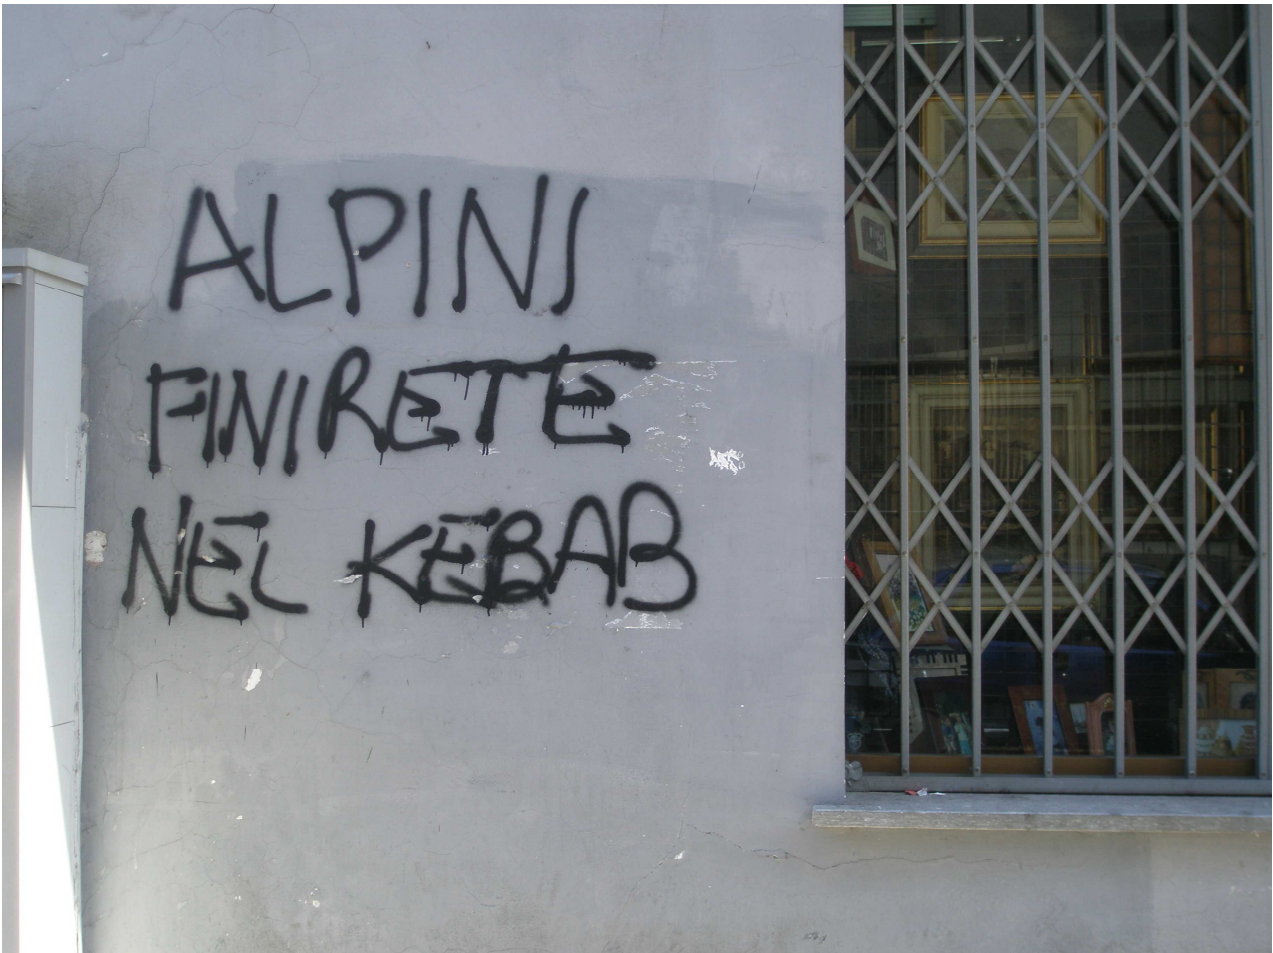 ALPINI
FINIRETE
NEL KEBAB